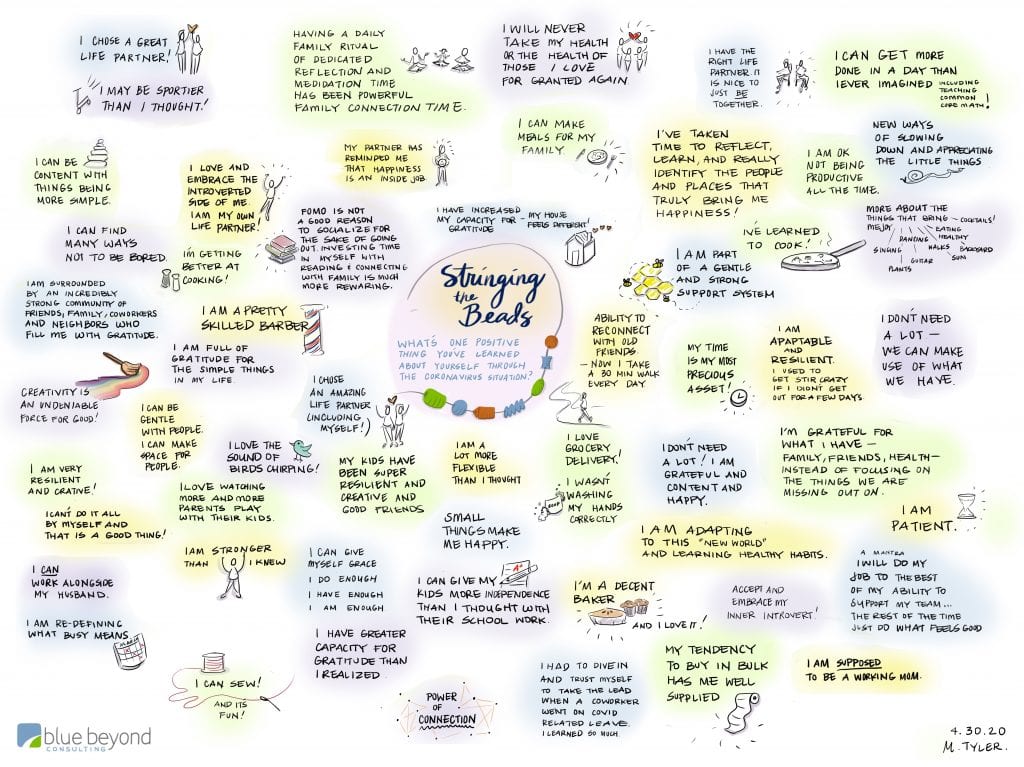 I CHOSE A GREAT
LIFE PARTNER!
I MAY BE SPORTIER
THAN I THOUGHT!
HAVING A DAILY
FAMILY RITUAL
OF DEDICATED
REFLECTION AND
MEDIDATION TIME
HAS BEEN POWERFUL
FAMILY CONNECTION TIME.
I WILL NEVER
TAKE MY HEALTH
OR THE HEALTH OF
THOSE I LOVE
FOR GRANTED AGAIN
I HAVE THE
RIGHT LIFE
PARTNER. IT
IS NICE TO
JUST BE
TOGETHER.
I CAN GET MORE
DONE IN A DAY THAN
I EVER IMAGINED
INCLUDING
TEACHING
COMMON
CORE MATH!
I CAN BE
CONTENT WITH
THINGS BEING
MORE SIMPLE.
I LOVE AND
EMBRACE THE
INTROVERTED
SIDE OF ME.
I AM MY OWN
LIFE PARTNER!
MY PARTNER HAS
REMINDED ME
THAT HAPPINESS
IS AN INSIDE JOB.
I CAN MAKE
MEALS FOR MY
FAMILY.
I'VE TAKEN
TIME TO REFLECT,
LEARN, AND REALLY
IDENTIFY THE PEOPLE
AND PLACES THAT
TRULY BRING ME
HAPPINESS!
I AM OK
NOT BEING
PRODUCTIVE
ALL THE TIME.
NEW WAYS
OF SLOWING
DOWN AND APPRECIATING
THE LITTLE THINGS
I CAN FIND
MANY WAYS
NOT TO BE BORED.
I'M GETTING
BETTER AT
COOKING!
FOMO IS NOT
A GOOD REASON
TO SOCIALIZE FOR
THE SAKE OF GOING
OUT. INVESTING TIME
IN MYSELF WITH
READING & CONNECTING
WITH FAMILY IS MUCH
MORE REWARING.
I HAVE INCREASED
MY CAPACITY FOR
GRATITUDE
- MY HOUSE
FEELS DIFFERENT!
I'VE LEARNED
TO COOK!
MORE ABOUT THE
THINGS THAT BRING
ME JOY
COCKTAILS!
EATING
HEALTHY
DANCING
WALKS
BACKYARD
SUN
SINGING
GUITAR
PLANTS
I AM SURROUNDED
BY AN INCREDIBLY
STRONG COMMUNITY OF
FRIENDS, FAMILY, COWORKERS
AND NEIGHBORS WHO
FILL ME WITH GRATITUDE.
I AM A PRETTY
SKILLED BARBER
Stringing
the
Beads
WHAT'S ONE POSITIVE
THING YOU'VE LEARNED
ABOUT YOURSELF THROUGH
THE CORONAVIRUS SITUATION?
I AM PART
OF A GENTLE
AND STRONG
SUPPORT SYSTEM
ABILITY TO
RECONNECT
WITH OLD
FRIENDS.
- NOW I TAKE
A 30 MIN WALK
EVERY DAY
MY TIME
IS MY MOST
PRECIOUS
ASSET!
I AM
ADAPTABLE
AND
RESILIENT.
I USED TO
GET STIR CRAZY
IF I DIDN'T GET
OUT FOR A FEW DAYS.
I DON'T NEED
A LOT —
WE CAN MAKE
USE OF WHAT
WE HAVE.
CREATIVITY IS
AN UNDENIABLE
FORCE FOR GOOD!
I AM FULL OF
GRATITUDE FOR
THE SIMPLE THINGS
IN MY LIFE.
I CHOSE
AN AMAZING
LIFE PARTNER
(INCLUDING
MYSELF!)
I CAN BE
GENTLE
WITH PEOPLE.
I CAN MAKE
SPACE FOR
PEOPLE.
I LOVE THE
SOUND OF
BIRDS CHIRPING!
I AM VERY
RESILIENT
AND CRATIVE!
I LOVE WATCHING
MORE AND MORE
PARENTS PLAY
WITH THEIR KIDS.
MY KIDS HAVE
BEEN SUPER
RESILIENT AND
CREATIVE AND
GOOD FRIENDS
I AM A
LOT MORE
FLEXIBLE
THAN I THOUGHT
I LOVE
GROCERY
DELIVERY!
I WASN'T
WASHING
MY HANDS
CORRECTLY
SOAP
I DON'T NEED
A LOT! I AM
GRATEFUL AND
CONTENT AND
HAPPY.
I'M GRATEFUL FOR
WHAT I HAVE —
FAMILY, FRIENDS, HEALTH—
INSTEAD OF FOCUSING ON
THE THINGS WE ARE
MISSING OUT ON.
I AM
PATIENT.
I CAN'T DO IT ALL
BY MYSELF AND
THAT IS A GOOD THING!
SMALL
THINGS MAKE
ME HAPPY.
I AM ADAPTING
TO THIS "NEW WORLD"
AND LEARNING HEALTHY HABITS.
I AM STRONGER
THAN I KNEW
I CAN
WORK ALONGSIDE
MY HUSBAND.
I CAN GIVE
MYSELF GRACE
I DO ENOUGH
I HAVE ENOUGH
I AM ENOUGH
I CAN GIVE MY
KIDS MORE INDEPENDENCE
THAN I THOUGHT WITH
THEIR SCHOOL WORK.
A+
I'M A DECENT
BAKER
AND I LOVE IT!
ACCEPT AND
EMBRACE MY
INNER INTROVERT!
A MANTRA
I WILL DO MY
JOB TO THE BEST
OF MY ABILITY TO
SUPPORT MY TEAM...
THE REST OF THE TIME
JUST DO WHAT FEELS GOOD
I AM RE-DEFINING
WHAT BUSY MEANS
I HAVE GREATER
CAPACITY FOR
GRATITUDE THAN
I REALIZED.
I CAN SEW!
AND ITS
FUN!
POWER
OF
CONNECTION
I HAD TO DIVE IN
AND TRUST MYSELF
TO TAKE THE LEAD
WHEN A COWORKER
WENT ON COVID
RELATED LEAVE.
I LEARNED SO MUCH.
MY TENDENCY
TO BUY IN BULK
HAS ME WELL
SUPPLIED
I AM SUPPOSED
TO BE A WORKING MOM.
blue beyond
CONSULTING
4.30.20
M. TYLER.